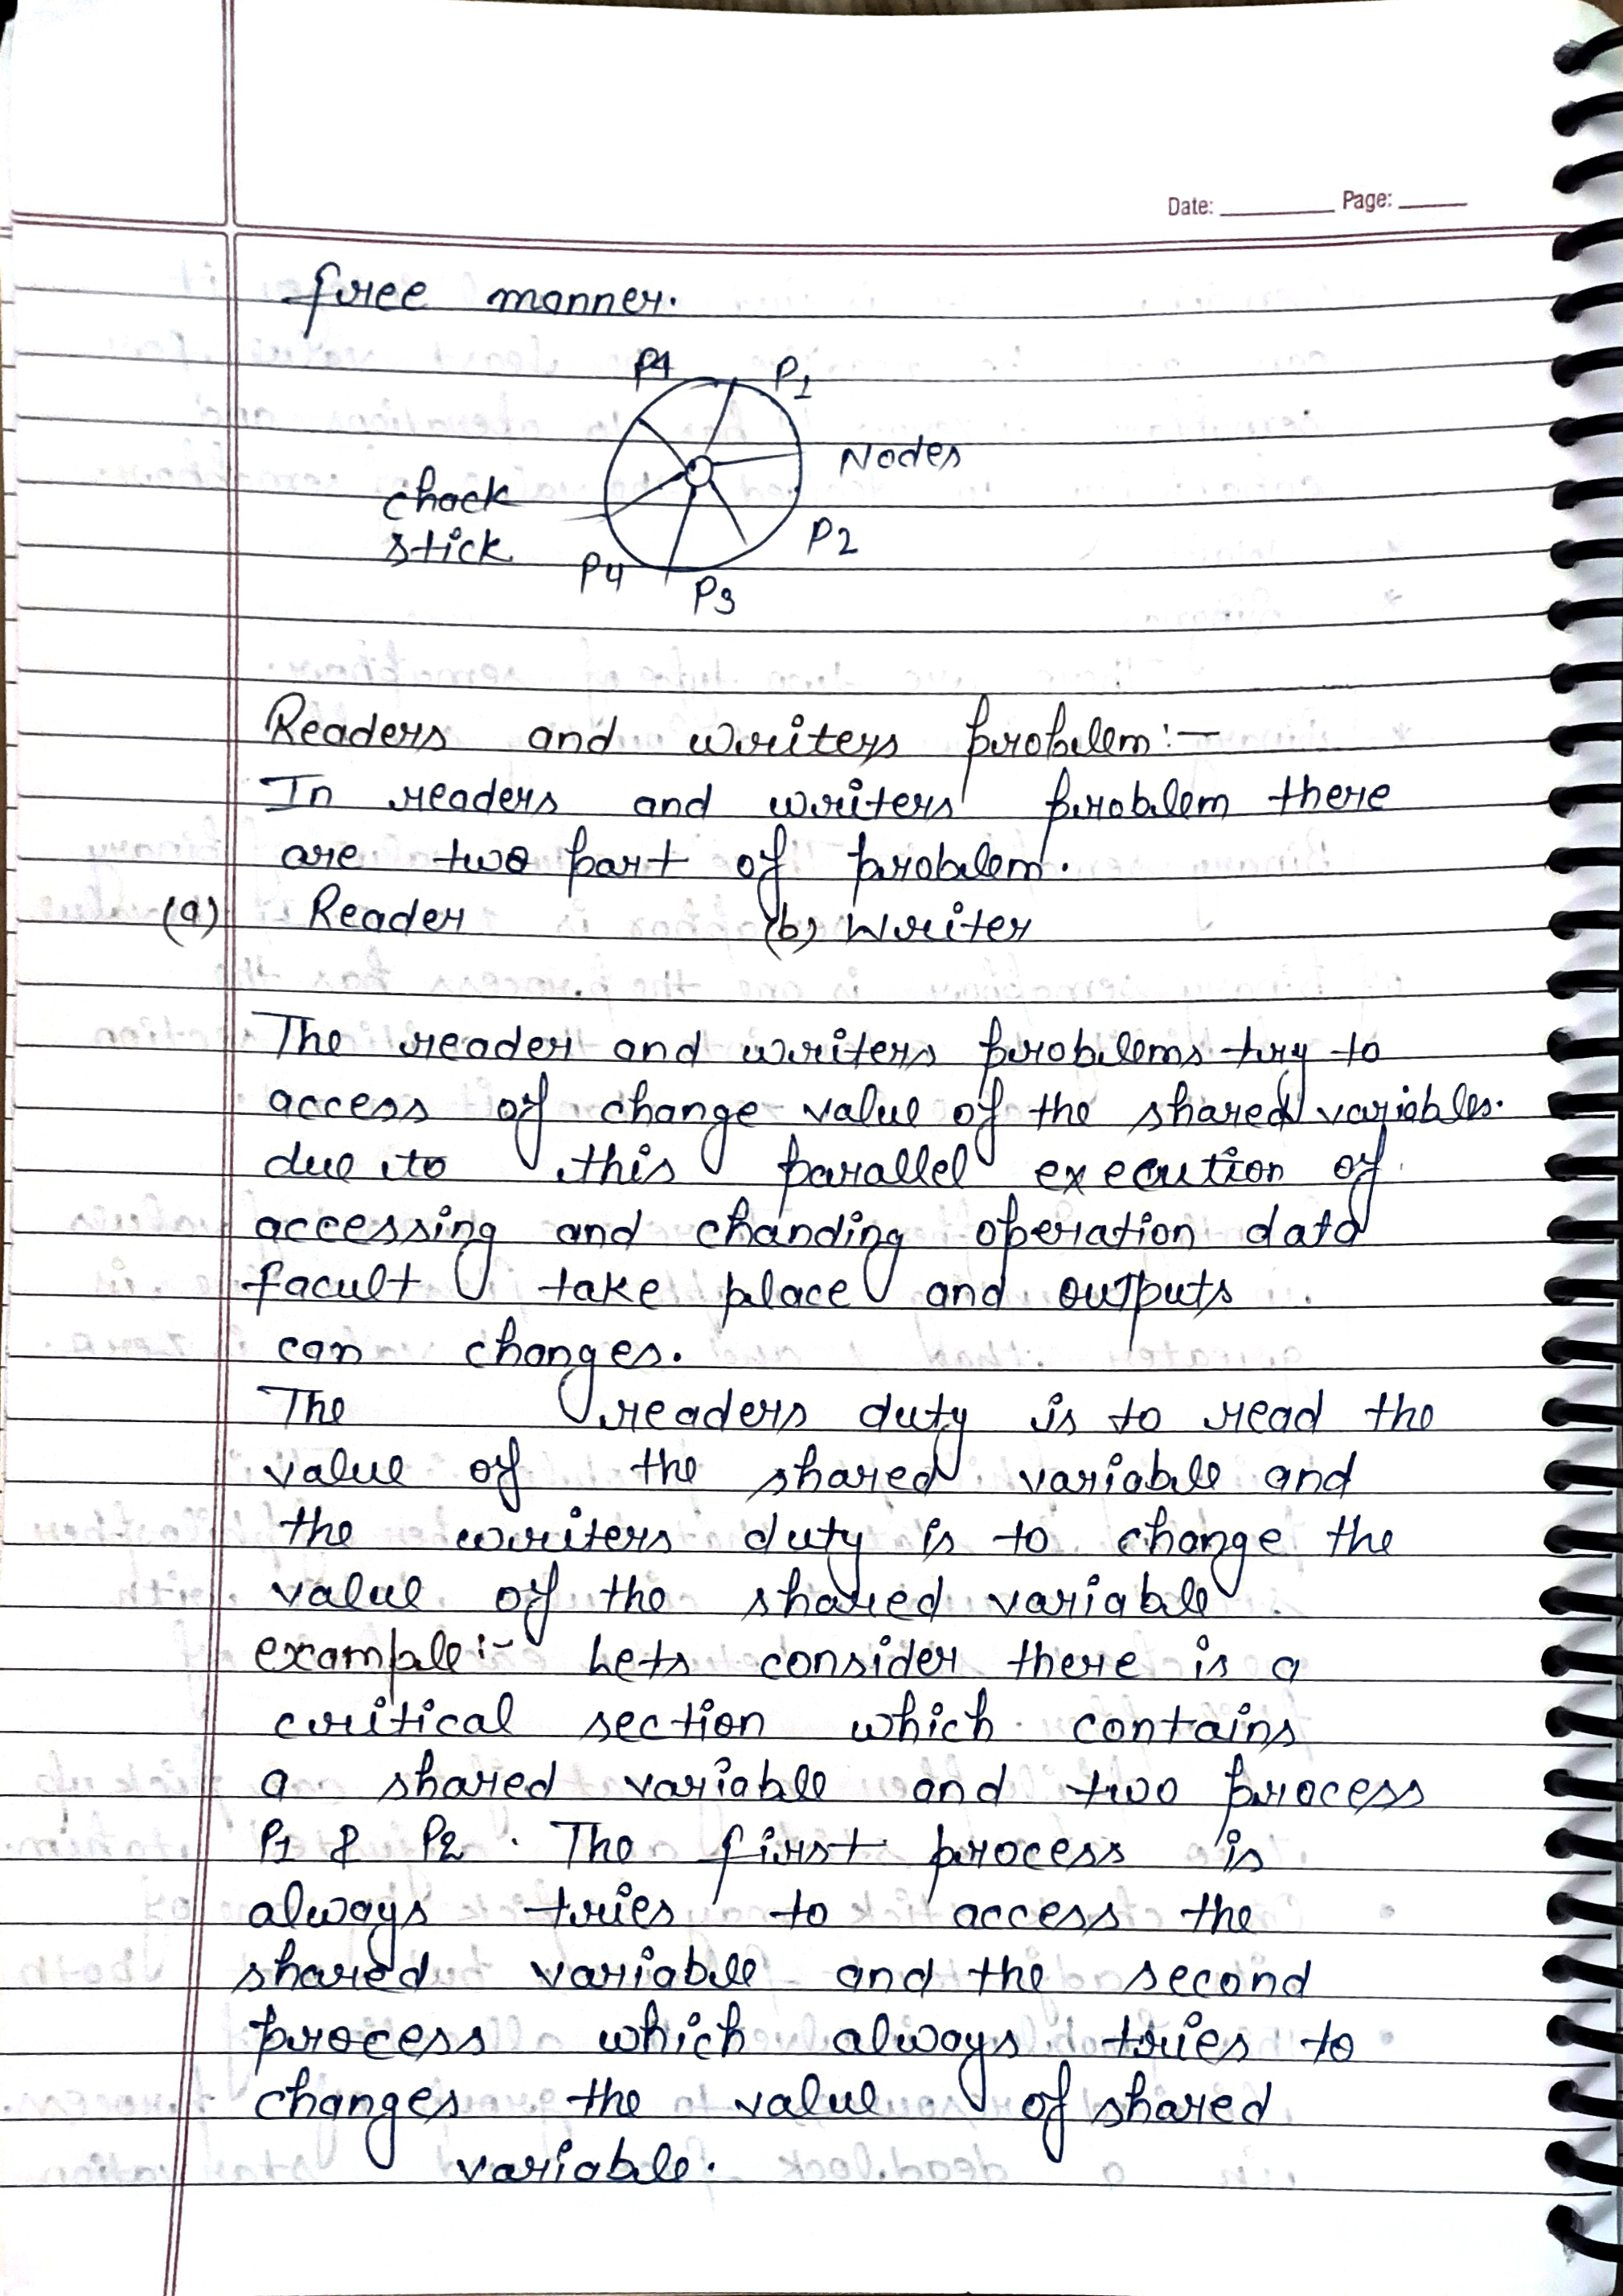 Date: Page:
free manner.
P4 P1
Nodes
chock
stick
P2
P4 P3
Readers and writers problem:-
In readers and writers problem there
are two part of problem.
(a) Reader (b) Writer
The reader and writers problems try to
access of change value of the shared variables.
due to this parallel execution of
accessing and chanding operation data
facult take place and outputs
can changes.
The readers duty is to read the
value of the shared variable and
the writers duty is to change the
value of the shared variable
example:- Lets consider there is a
critical section which contains
a shared variable and two process
P1 & P2. The first process is
always tries to access the
shared variable and the second
process which always tries to
changes the value of shared
variable.